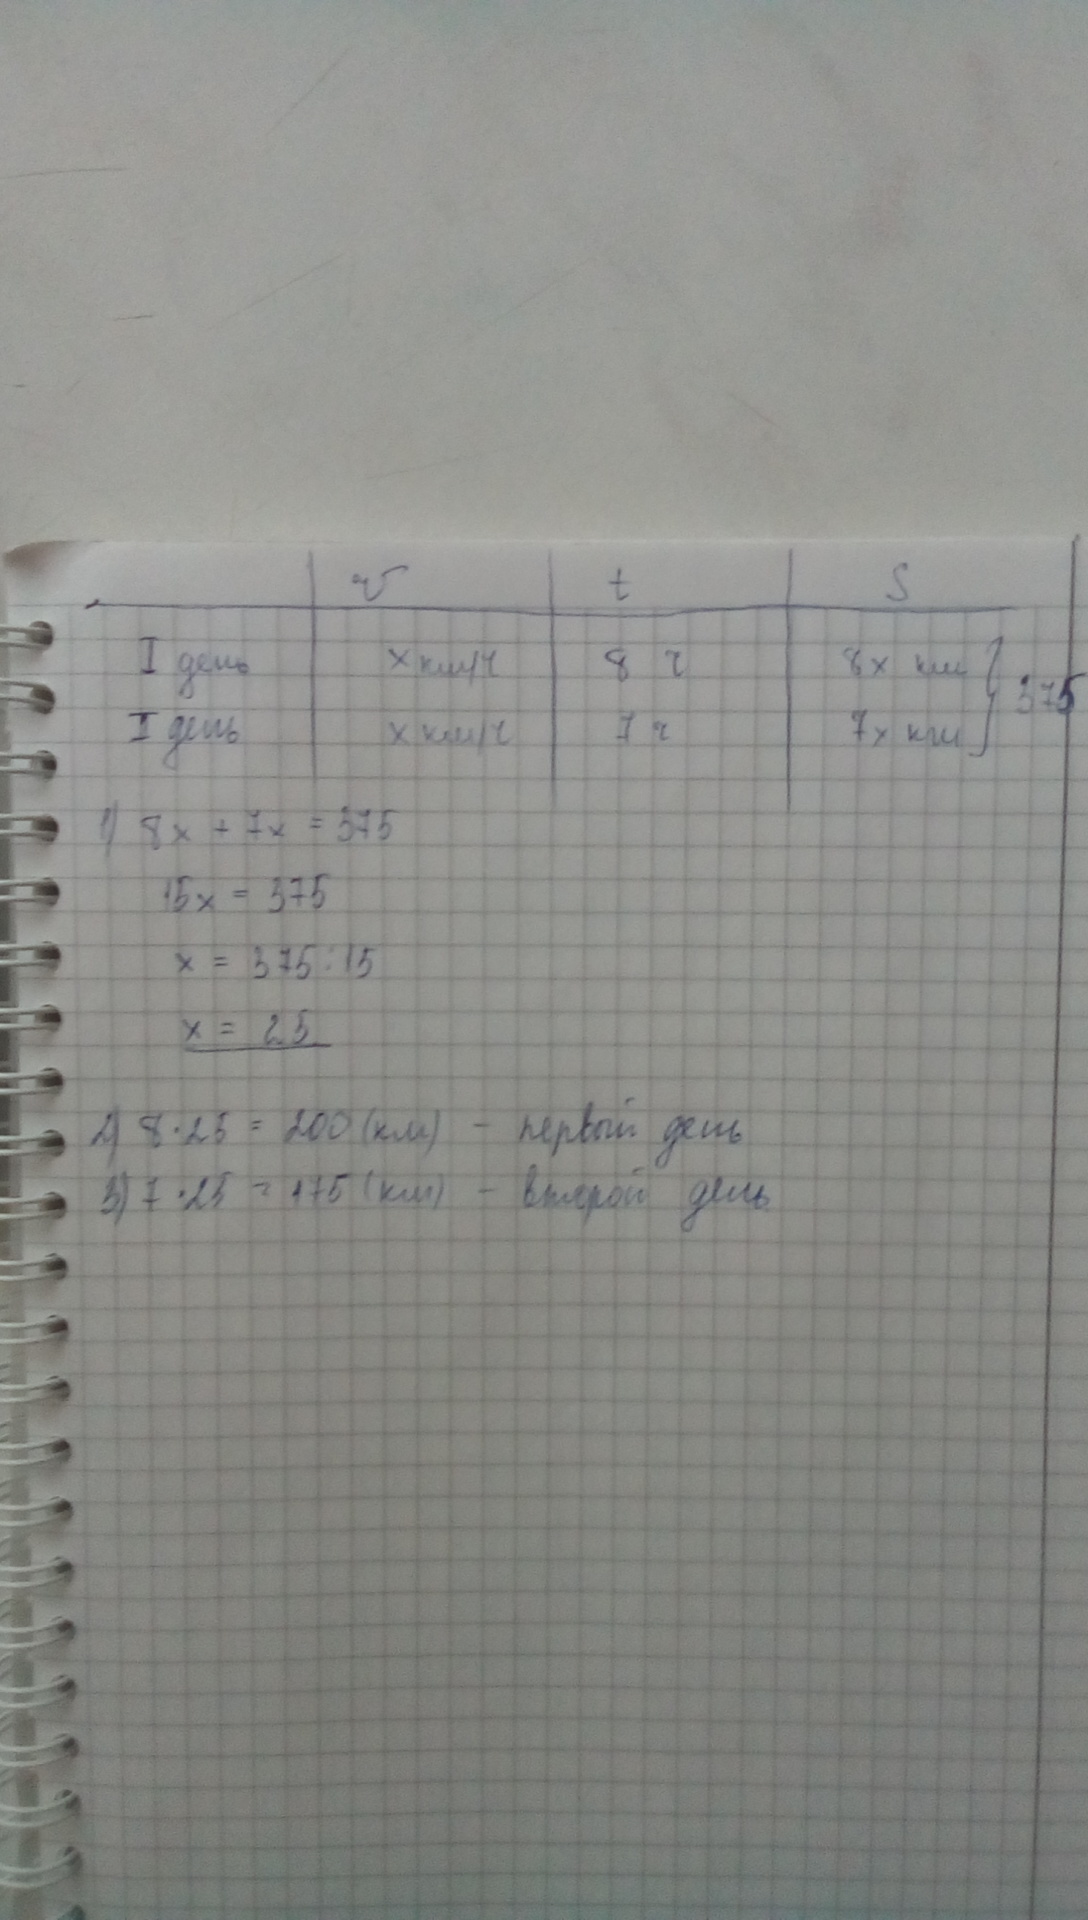 v t S
I день x км/ч 8 ч 8x км
375
I день x км/ч 7 ч 7x км
1) 8x + 7x = 375
15x = 375
x = 375:15
x = 25
2) 8·25 = 200 (км) - первый день
3) 7·25 = 175 (км) - второй день